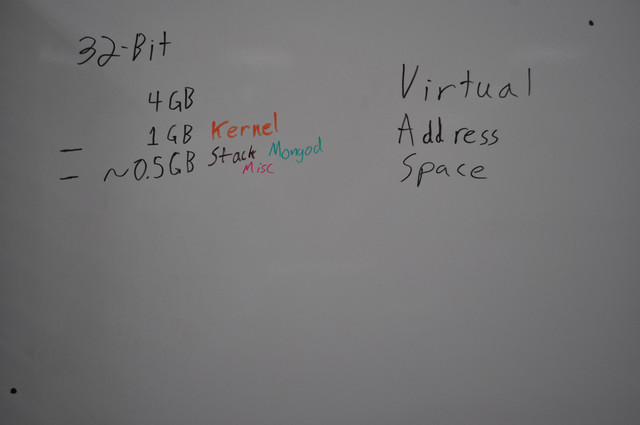 32-Bit
4GB
- 1GB Kernel
- ~0.5GB Stack Mongod
Misc
Virtual
Address
Space